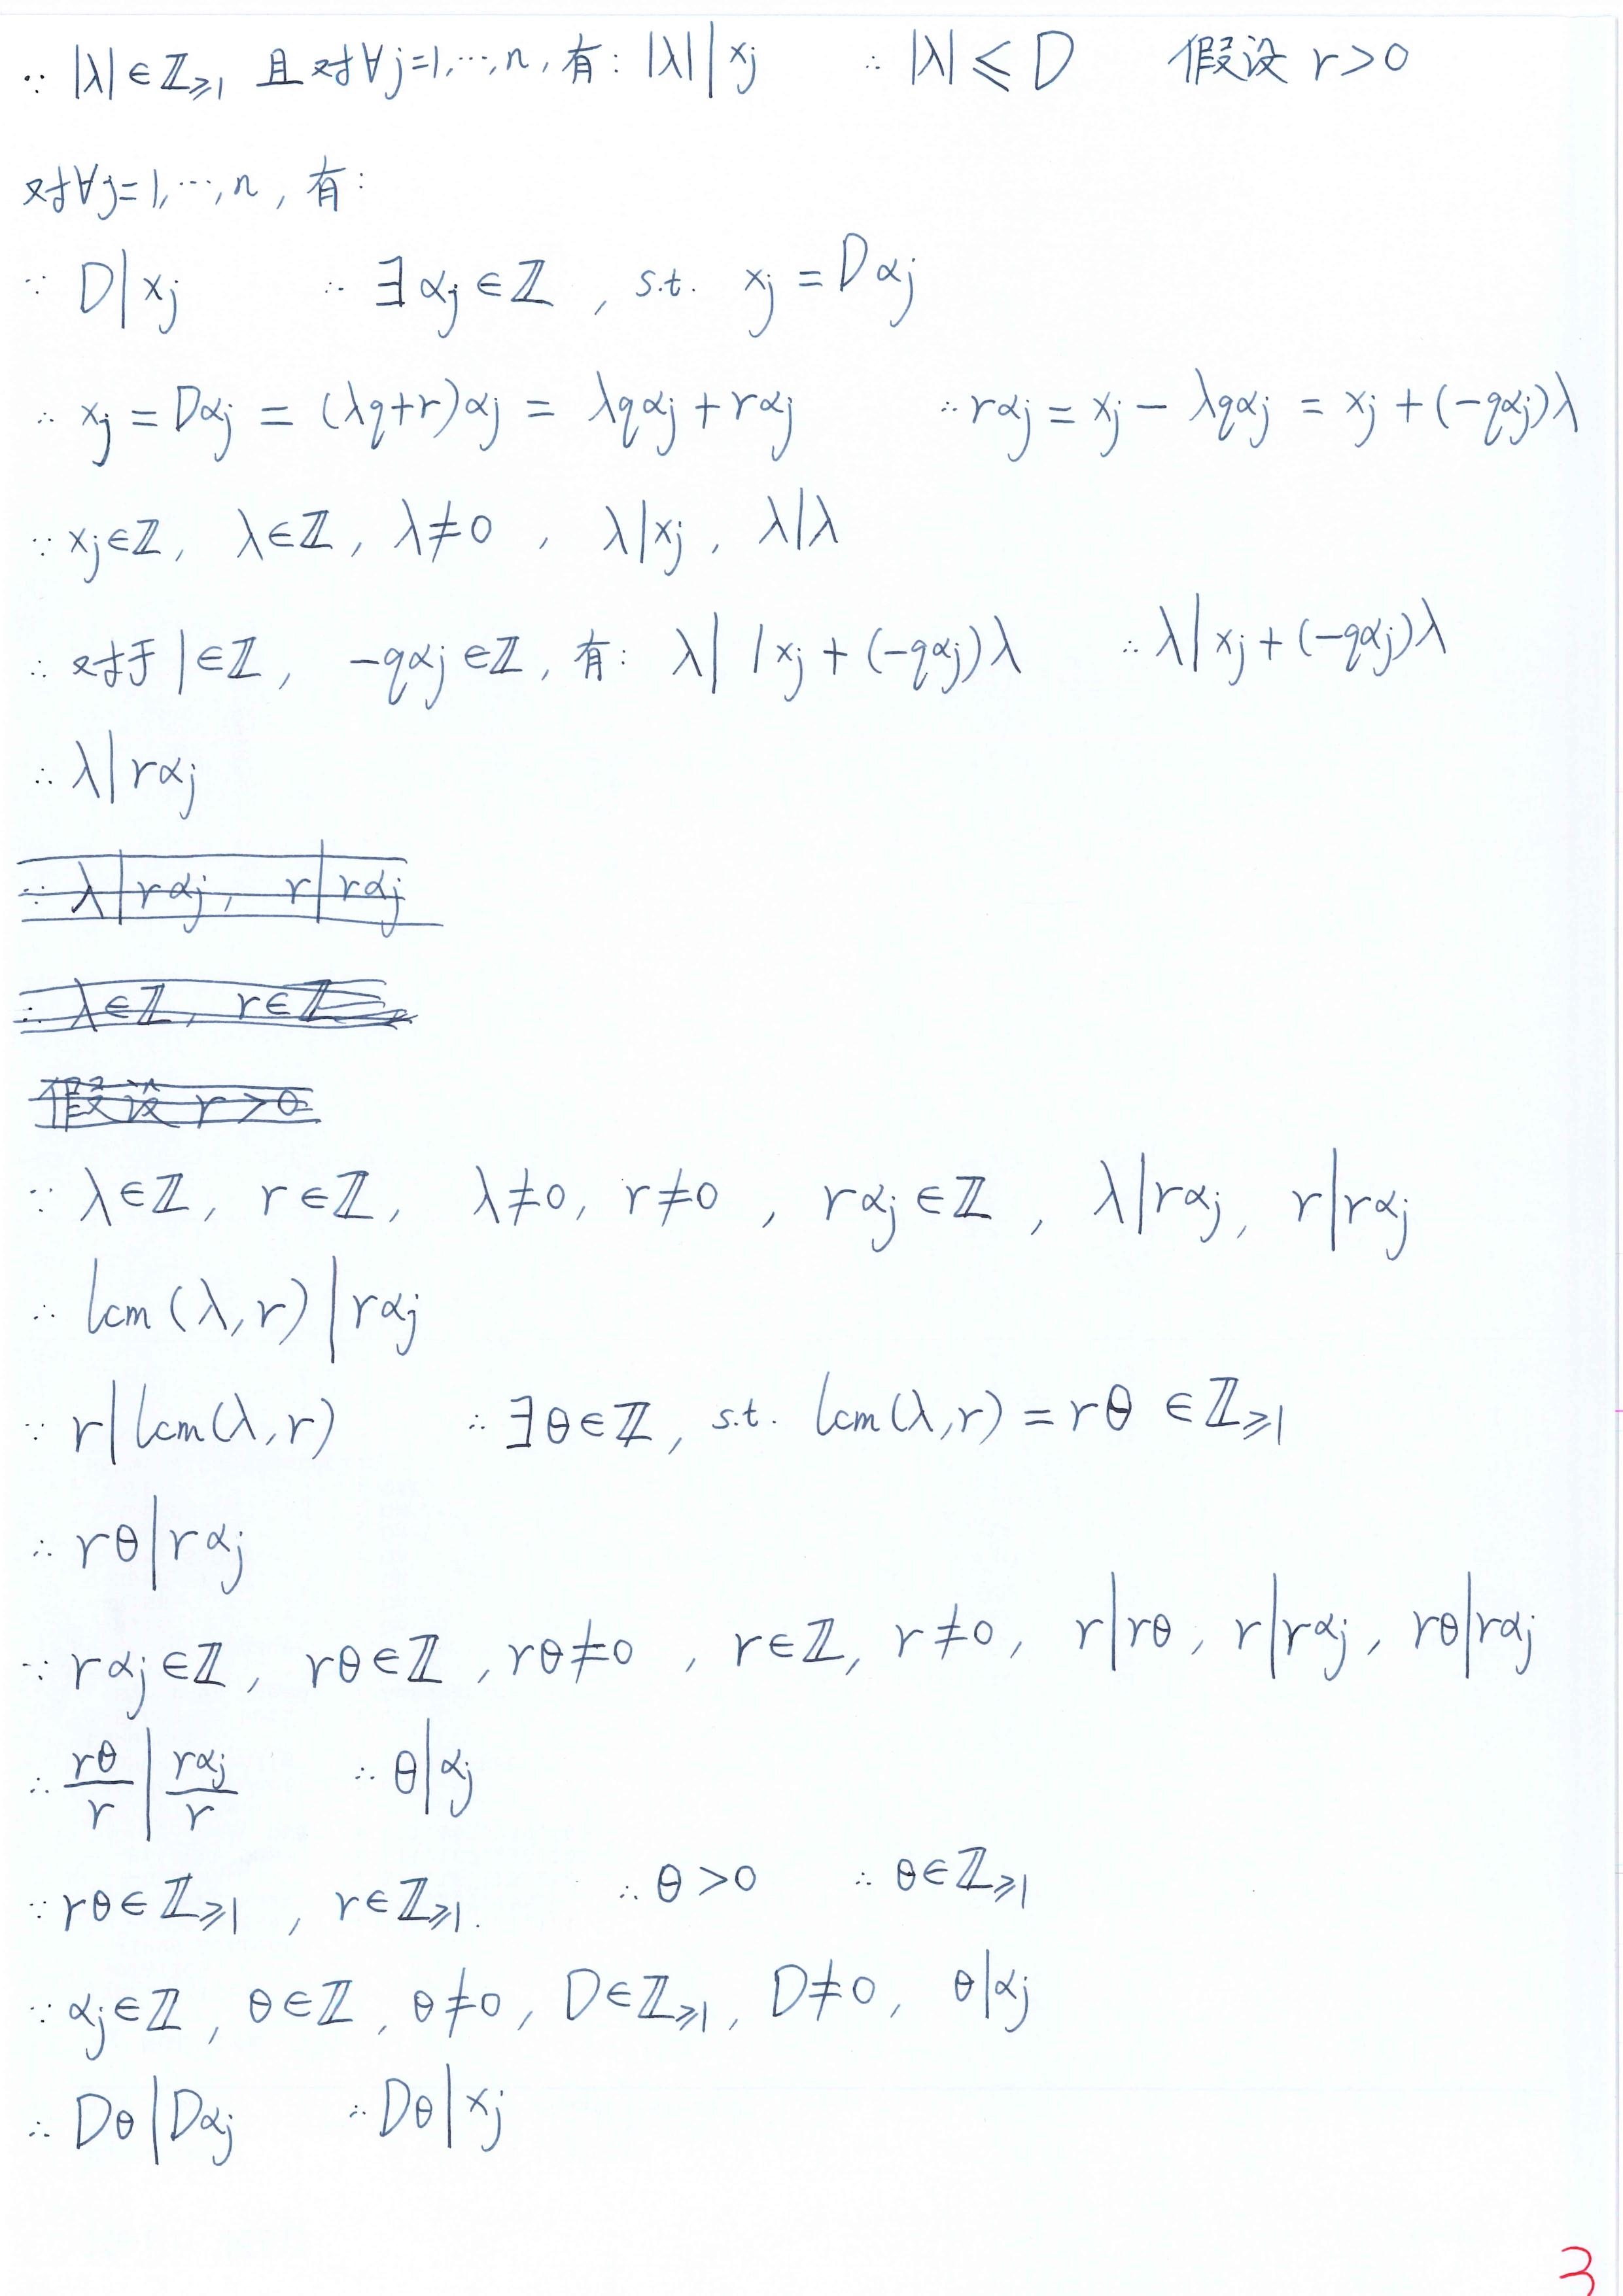 ∵ |λ|∈ℤ≥1 且对∀j=1,…,n,有: |λ| | xj ∴ |λ| ≤ D 假设 r>0
对∀j=1,…,n,有:
∵ D|xj ∴ ∃αj∈ℤ, s.t. xj = Dαj
∴ xj = Dαj = (λq+r)αj = λqαj + rαj ∴ rαj = xj − λqαj = xj + (−qαj)λ
∵ xj∈ℤ, λ∈ℤ, λ≠0, λ|xj, λ|λ
∴ 对于1∈ℤ, −qαj∈ℤ,有: λ| 1xj + (−qαj)λ ∴ λ|xj + (−qαj)λ
∴ λ|rαj
∵ λ|rαj, r|rαj
∴ λ∈ℤ, r∈ℤ
假设 r>0
∵ λ∈ℤ, r∈ℤ, λ≠0, r≠0, rαj∈ℤ, λ|rαj, r|rαj
∴ lcm(λ,r)|rαj
∵ r|lcm(λ,r) ∴ ∃θ∈ℤ, s.t. lcm(λ,r) = rθ ∈ℤ≥1
∴ rθ|rαj
∵ rαj∈ℤ, rθ∈ℤ, rθ≠0, r∈ℤ, r≠0, r|rθ, r|rαj, rθ|rαj
∴ rθ/r | rαj/r ∴ θ|αj
∵ rθ∈ℤ≥1, r∈ℤ≥1. ∴ θ>0 ∴ θ∈ℤ≥1
∵ αj∈ℤ, θ∈ℤ, θ≠0, D∈ℤ≥1, D≠0, θ|αj
∴ Dθ|Dαj ∴ Dθ|xj
3